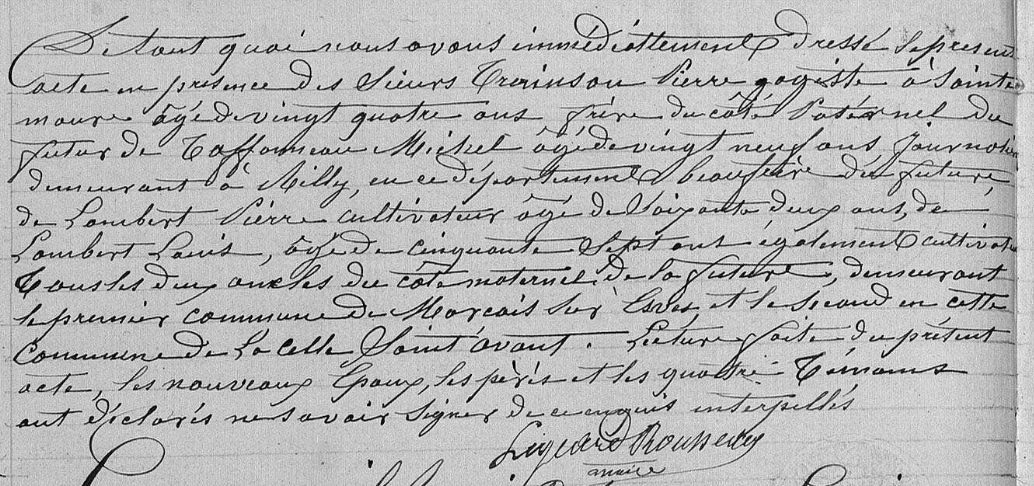 De tout quoi nous avons immédiattement dressé le present
acte en présence des Sieurs Pierre gagiste à Sainte
maure âgé de vingt quatre ans frère du côté Patérnel du
futur de Taffonneau Michel âgé de vingt neuf ans Journalier
demeurant à Rilly, en ce département beaufrère du futur,
de Lambert Pierre cultivateur âgé de Soixante deux ans, de
Lambert Louis, âgé de cinquante Sept ans également cultivateur
Tous les deux oncles du côté maternel de la future, demeurant
le premier commune de Marcais sur Esves et le Second en cette
commune de La celle Saint avant. Lecture faite du présent
acte, les nouveaux Epoux, les pères et les quatre Témoins
ont déclarés ne Savoir Signer de ce enquis interpellés
maire